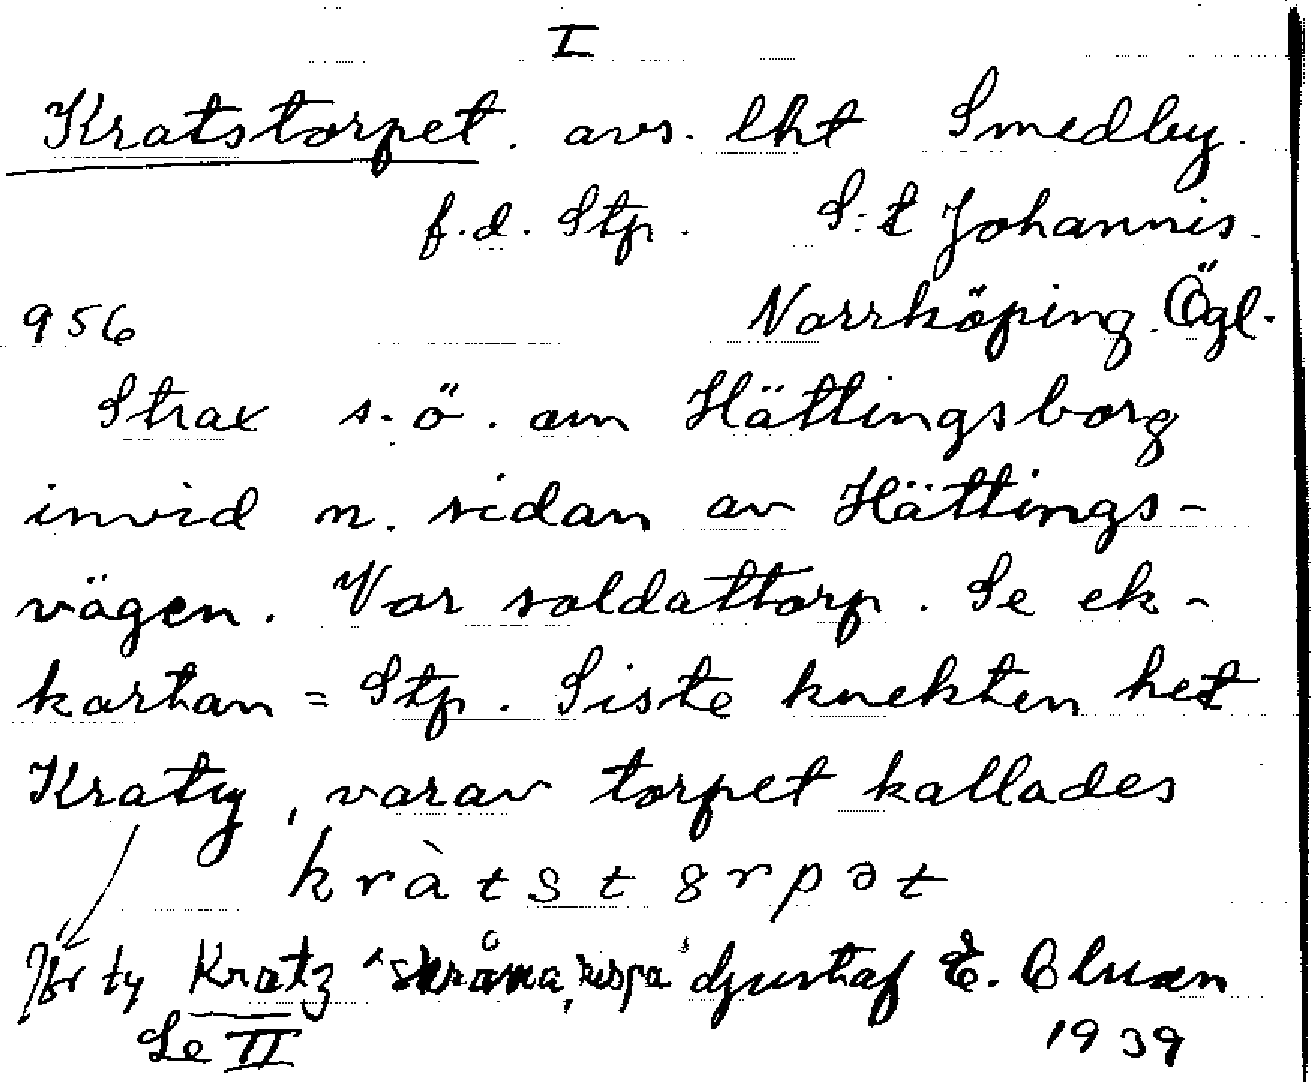 I
Kratstorpet. avs. lht Smedby.
f.d. Stp. S:t Johannis.
956 Norrköping. Ögl.
Strax s.ö. om Hättingsborg
invid n. sidan av Hättings-
vägen. Var soldattorp. Se ek-
kartan = Stp. Siste knekten het
Kratz, varav torpet kallades
kràtstɞrpət
Jfr ty Kratz "skråma, rispa" Gustaf E.
Se II 1939